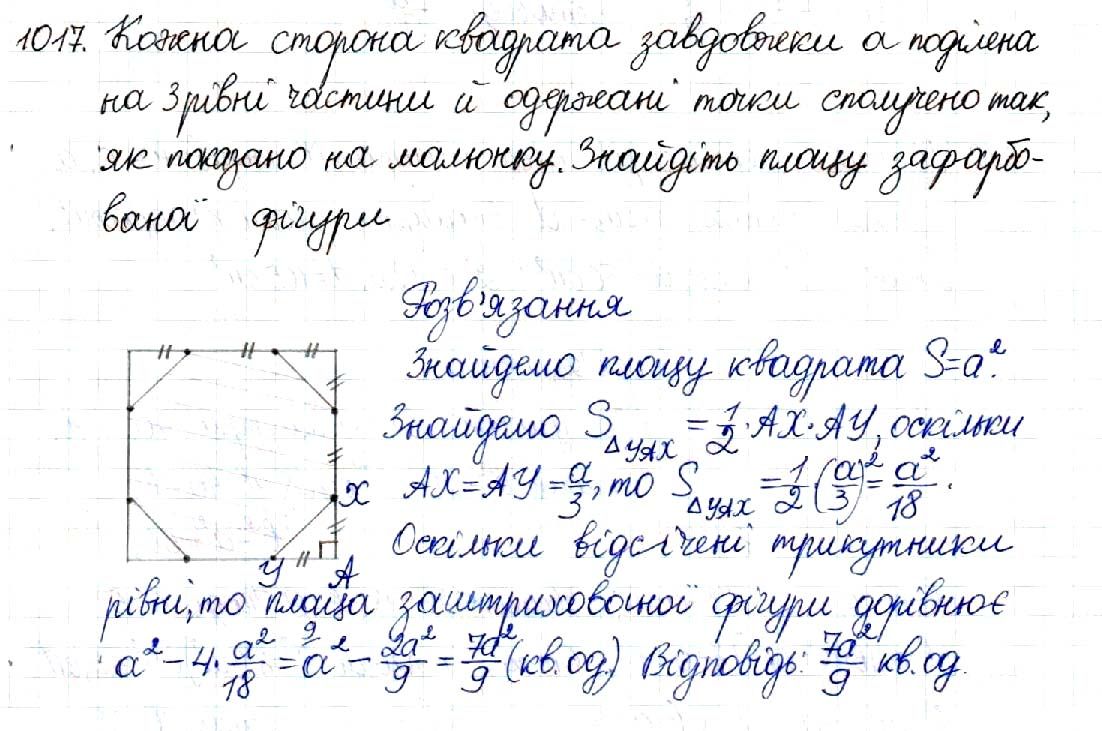 1017. Кожна сторона квадрата завдовжки а поділена
на 3 рівні частини й одержані точки сполучено так,
як показано на малюнку. Знайдіть площу зафарбо-
ваної фігури
Розв'язання
Знайдемо площу квадрата S=a².
Знайдемо S△YAX = 1/2 · AX · AY, оскільки
AX = AY = a/3, то S△YAX = 1/2 (a/3)² = a²/18.
Оскільки відсічені трикутники
рівні, то площа заштрихованої фігури дорівнює
a² − 4 · a²/18 = ⁹⁄a² − 2a²/9 = 7a²/9 (кв.од.) Відповідь: 7a²/9 кв.од.
X
Y
A